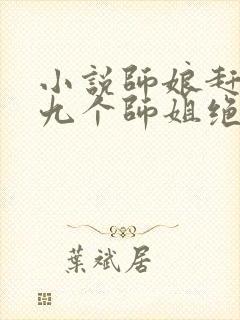 小說師娘赶
九个師姐绝
葉斌居